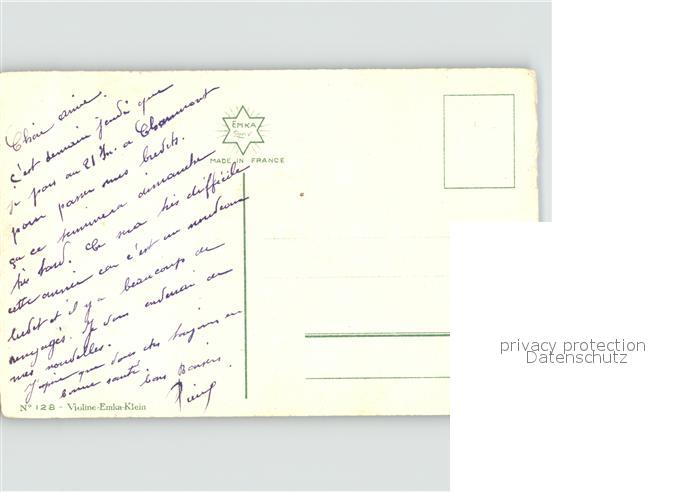 Chère amie.
C'est demain jeudi que
je pars au 21 à Chaumont
pour passer mes brevets.
ça ce terminera dimanche
très tard. Ce sera très difficile
cette année car c'est un nouveau
brevet et il y a beaucoup de
rengagés. Je vous enverrai de
mes nouvelles.
J'espère que vous êtes toujours en
bonne santé. Bons Baisers.
EMKA
MADE IN FRANCE
Nº 128 - Violine-Emka-Klein
privacy protection
Datenschutz